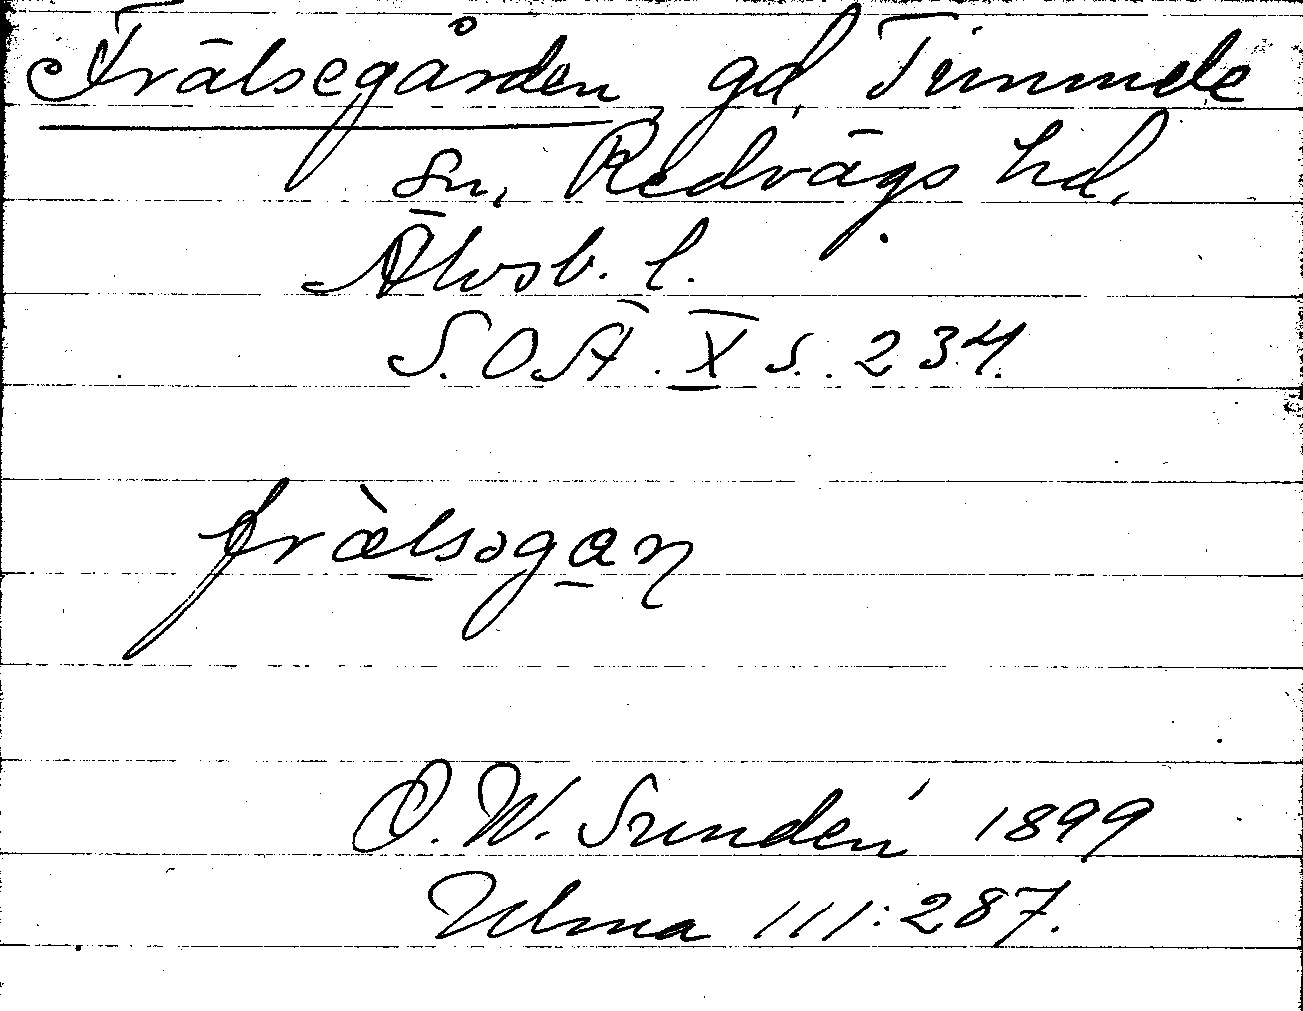 Frälsegården gd, Timmele
sn, Redvägs hd,
Älvsb. l.
S.O.Ä. X s. 234.
fræ̀lsəgaɳ
O. W. Sundén 1899
Ulma 111:287.